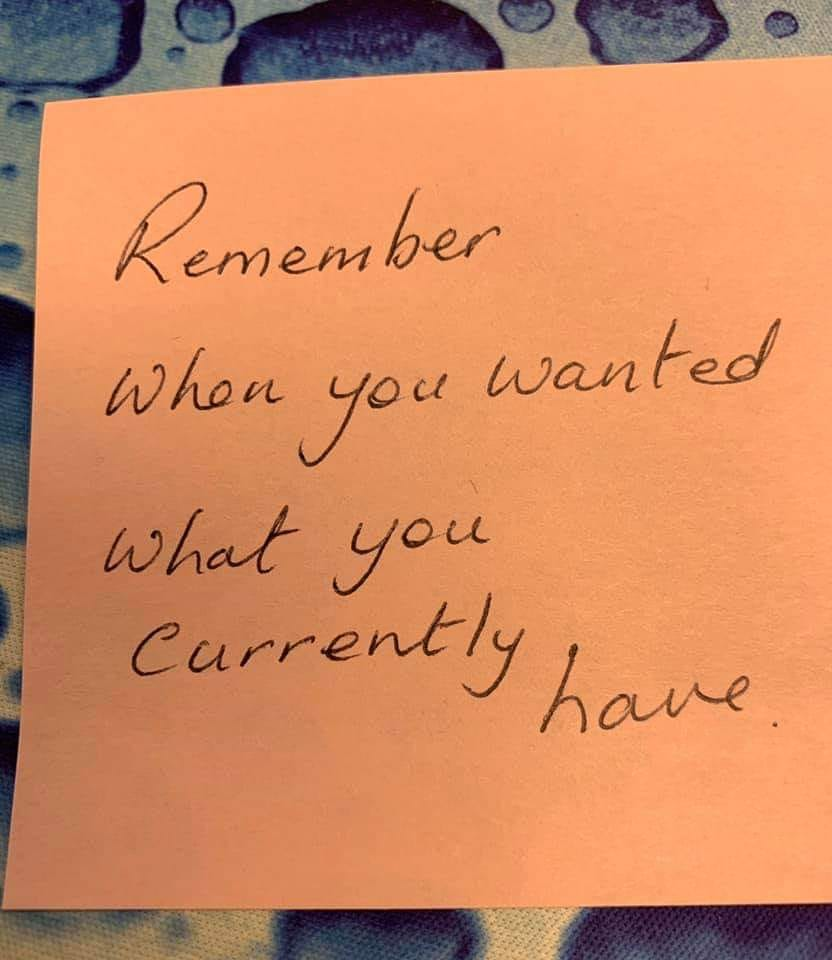 Remember
When you wanted
What you
Currently
have.